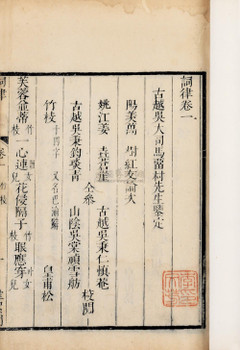 詞律卷一
古越吳大司馬留村先生鑒定
陽羨萬 樹紅友論次
姚江姜 垚蒼崖
古越吳秉仁慎菴
仝參
古越吳秉鈞琰青
山陰吳棠禎雪舫
校閱
竹枝 十四字 又名巴渝辭
皇甫松
芙蓉並蒂 竹枝 一心連 女兒 花侵隔子 竹枝 眼應穿 女兒
詞律
卷一